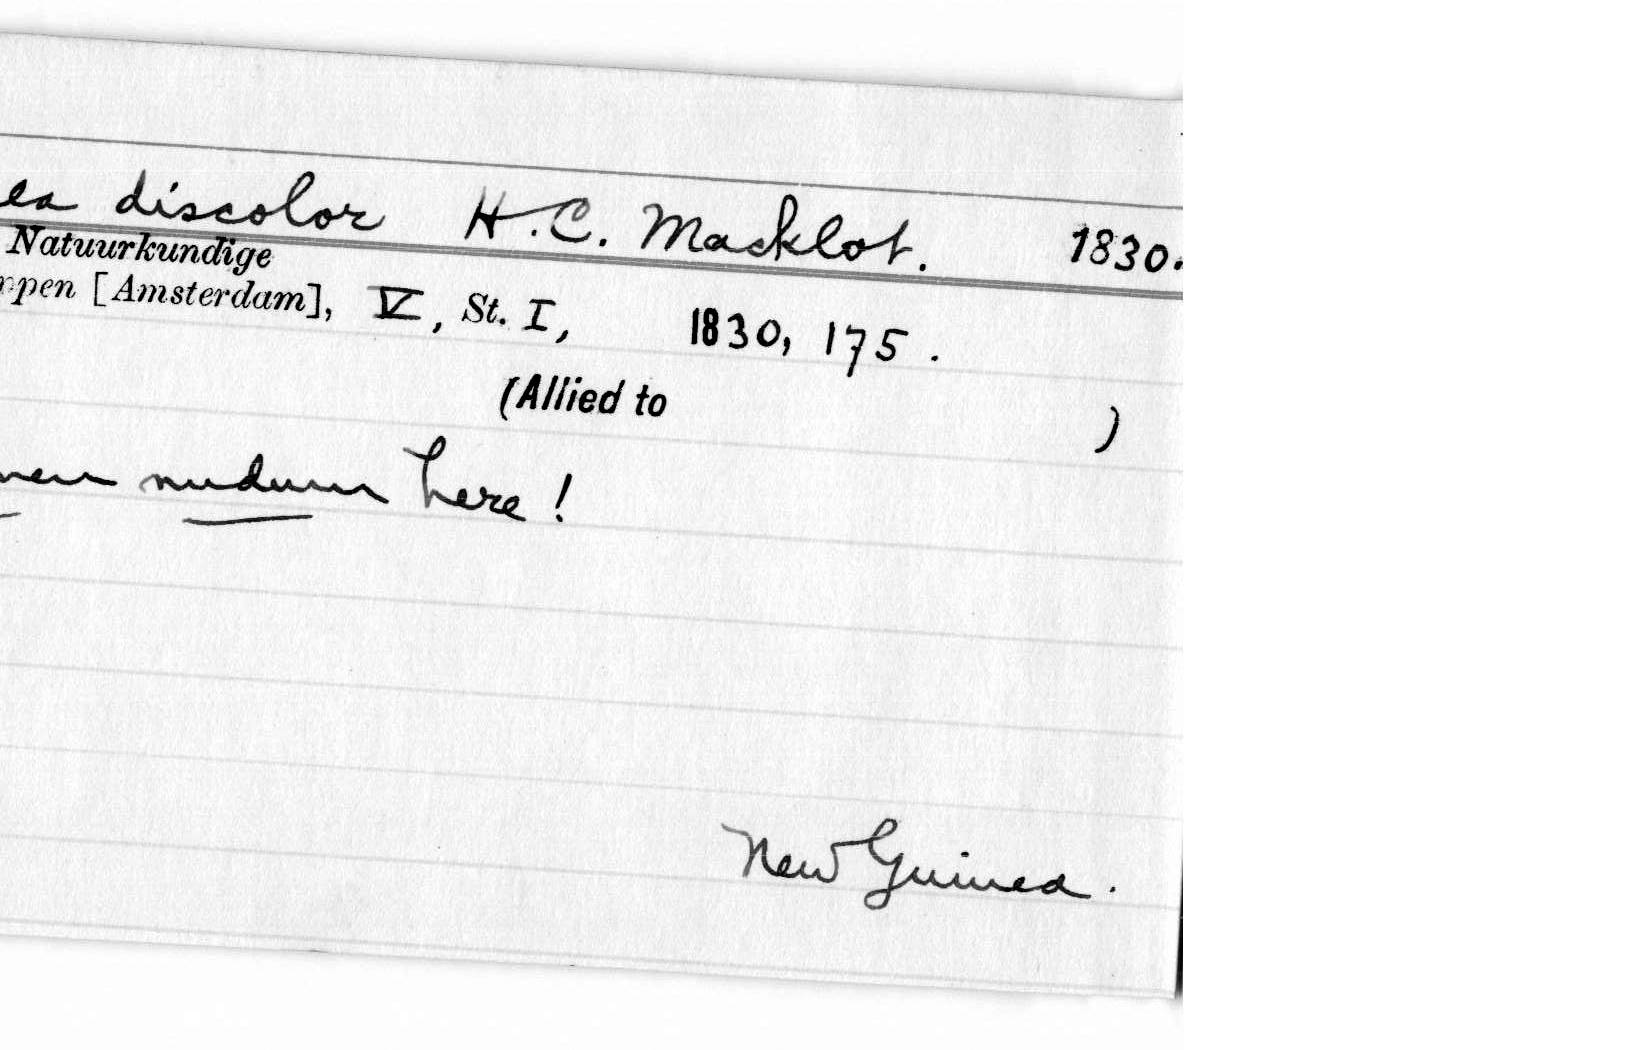 ea discolor H.C. Macklot. 1830.
Natuurkundige
ppen [Amsterdam], V, St. I, 1830, 175.
(Allied to )
men nudum here!
New Guinea.